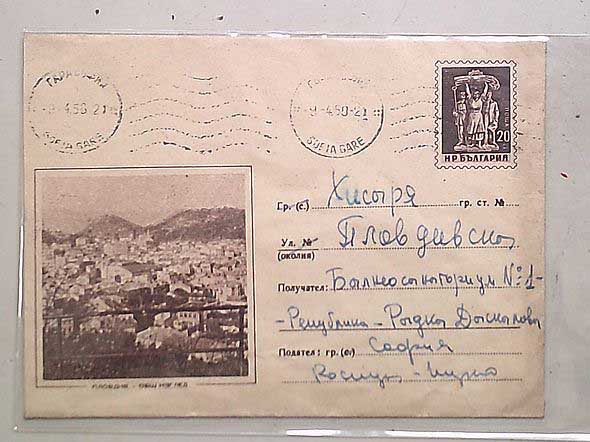 ГАРА СОФИЯ
-9.4.50-21
SOFIA GARE
ГАРА СОФИЯ
9-4.50-21
SOFIA GARE
20
НР. БЪЛГАРИЯ
Гр. (с.) Хисаря гр. ст. №
Ул. № Пловдивско
(околия)
Получател: Балнеосанаториум №1-
-Република- Дыскалова
Подател: гр. (с.) София
ПЛОВДИВ - ОБЩ ИЗГЛЕД